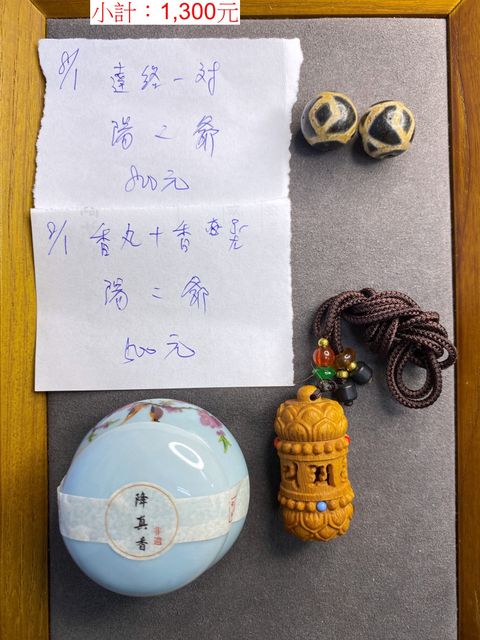 小計：1,300元
8/1
達絡一对
陽二爺
800元
8/1 香丸十香
陽二爺
500元
降真香